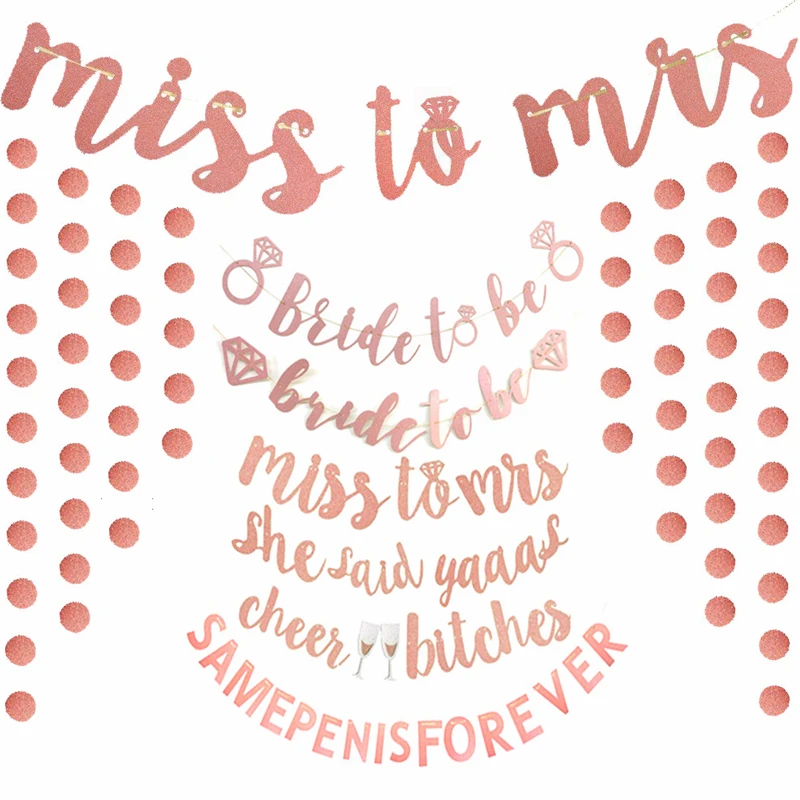 miss to mrs
bride to be
bride to be
miss to mrs
she said yaaas
cheer bitches
SAMEPENISFOREVER